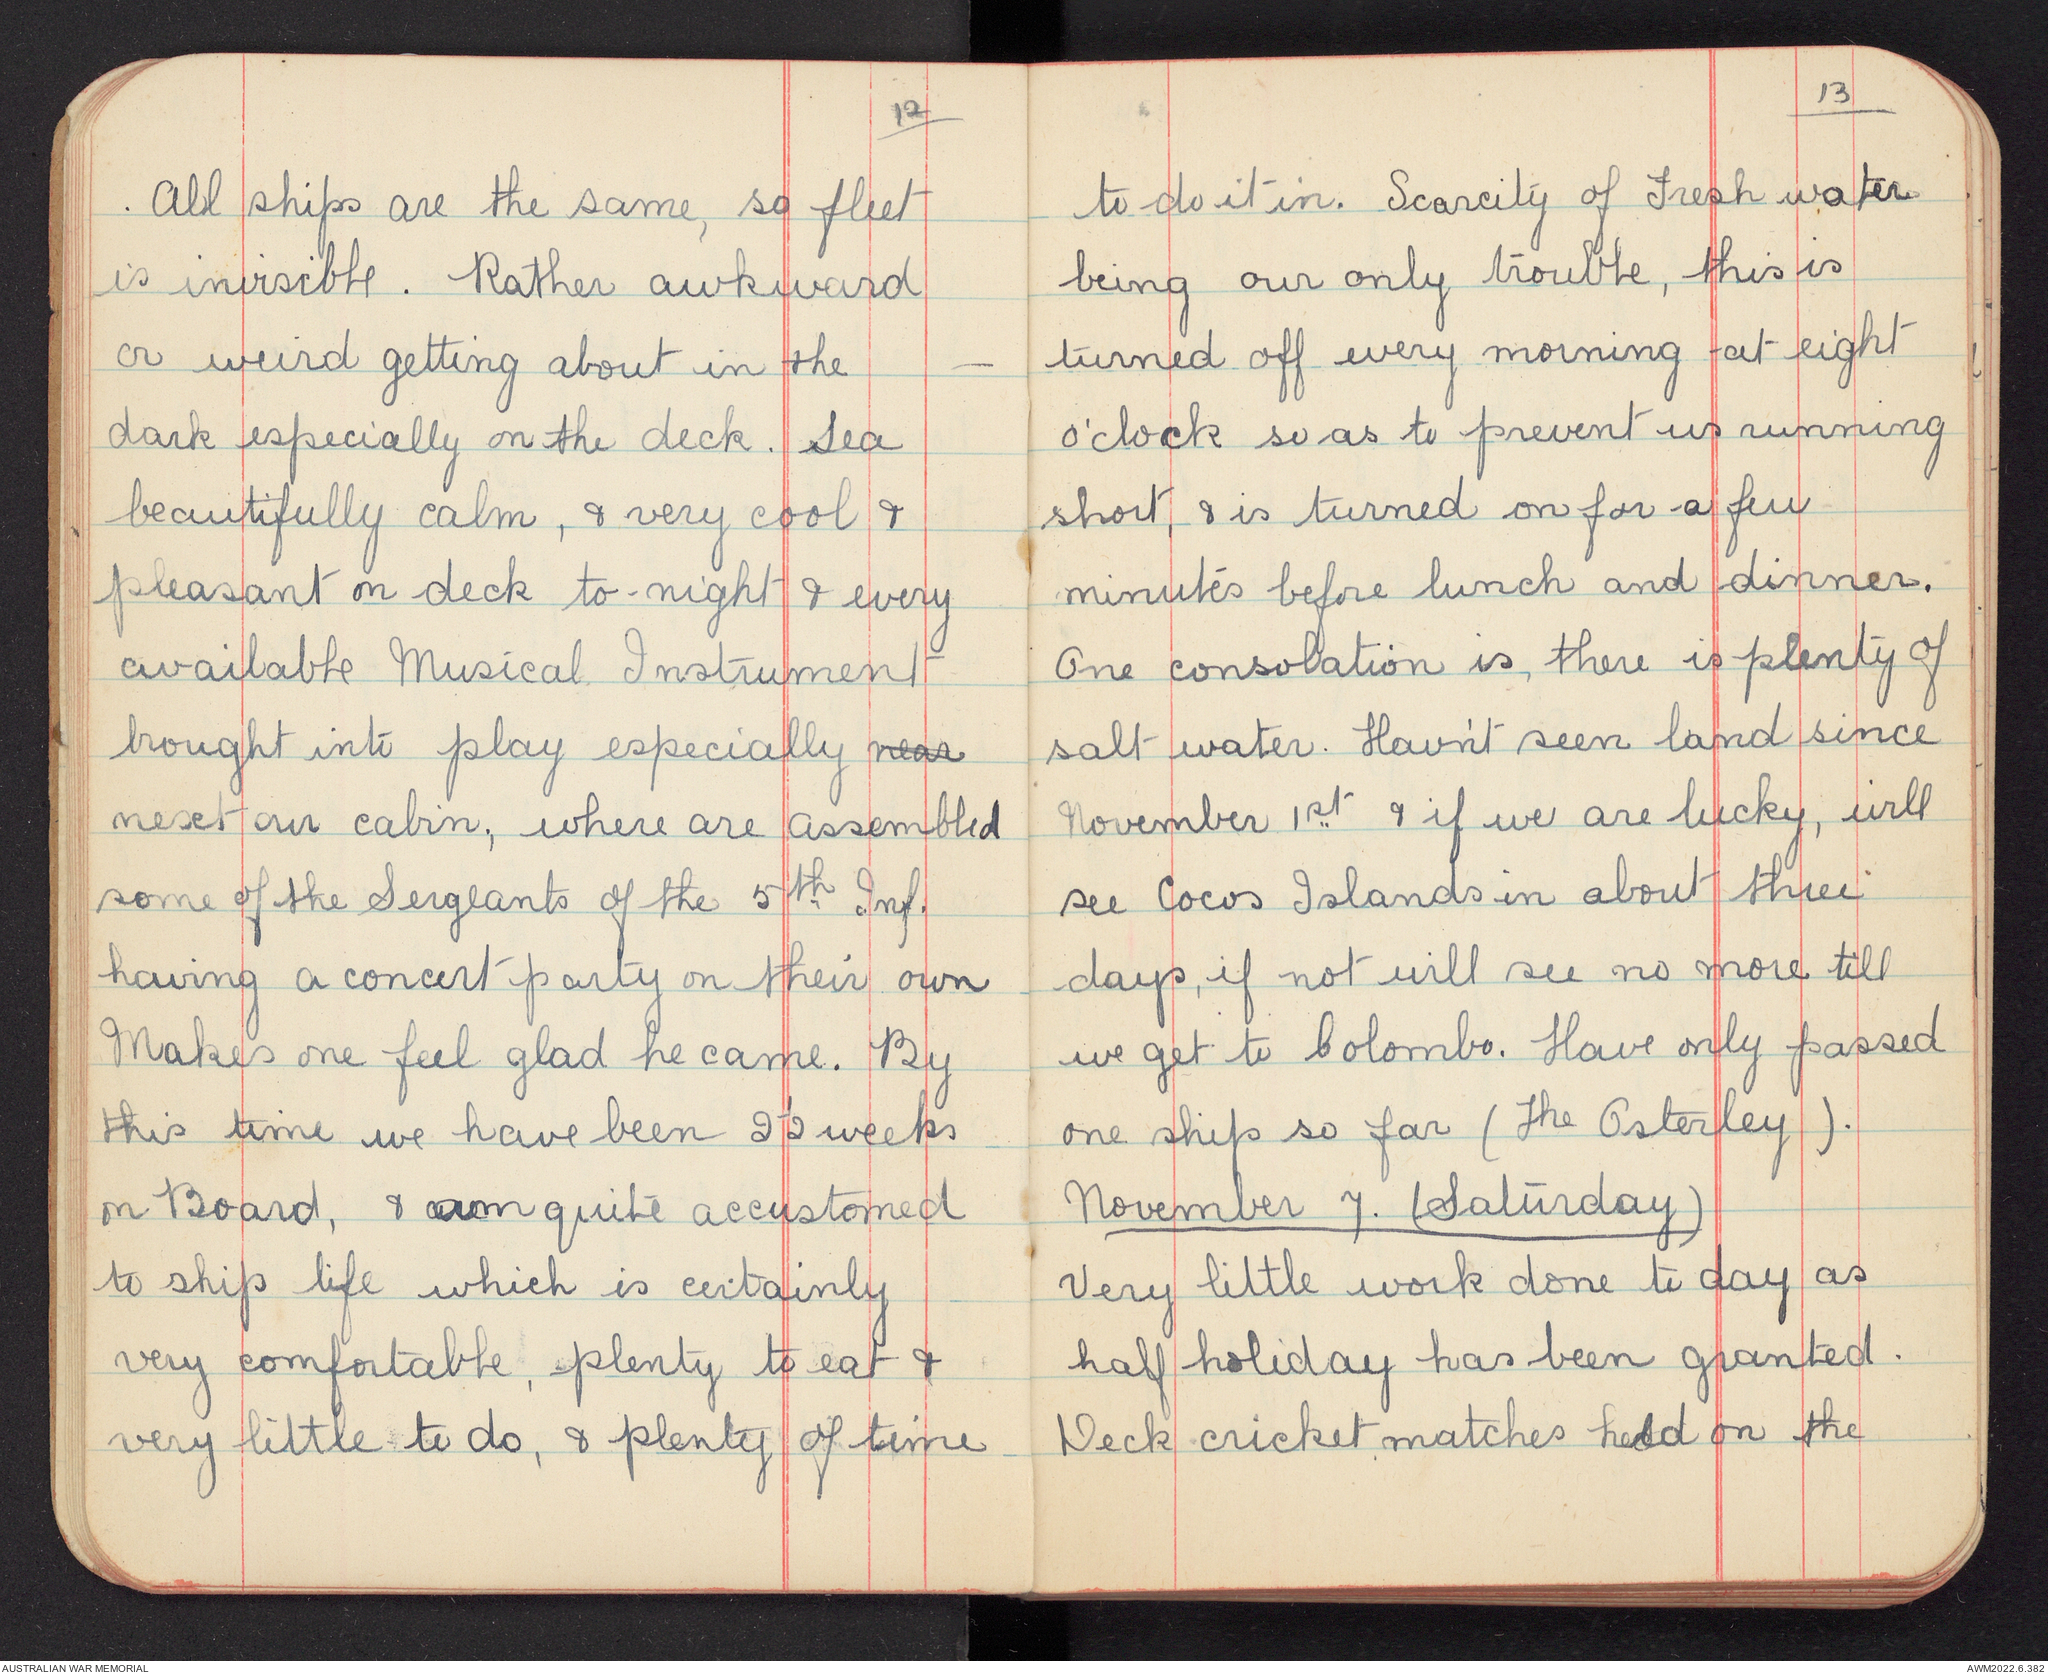 12
. All ships are the same, so fleet
is invisible. Rather awkward
or weird getting about in the
dark especially on the deck. Sea
beautifully calm, & very cool &
pleasant on deck to-night & every
available Musical Instrument
brought into play especially near
next our cabin, where are assembled
some of the Sergeants of the 5th Inf.
having a concert party on their own
Makes one feel glad he came. By
this time we have been 2½ weeks
on Board, & am quite accustomed
to ship life which is certainly
very comfortable, plenty to eat &
very little to do, & plenty of time
13
to do it in. Scarcity of Fresh water
being our only trouble, this is
turned off every morning at eight
o'clock so as to prevent us running
short, & is turned on for a few
minutes before lunch and dinner.
One consolation is, there is plenty of
salt water. Hav'nt seen land since
November 1st & if we are lucky, will
see Cocos Islands in about three
days, if not will see no more till
we get to Colombo. Have only passed
one ship so far (The Osterley).
November 7. (Saturday)
Very little work done to day as
half holiday has been granted.
Deck cricket matches held on the
AUSTRALIAN WAR MEMORIAL
AWM2022.6.382